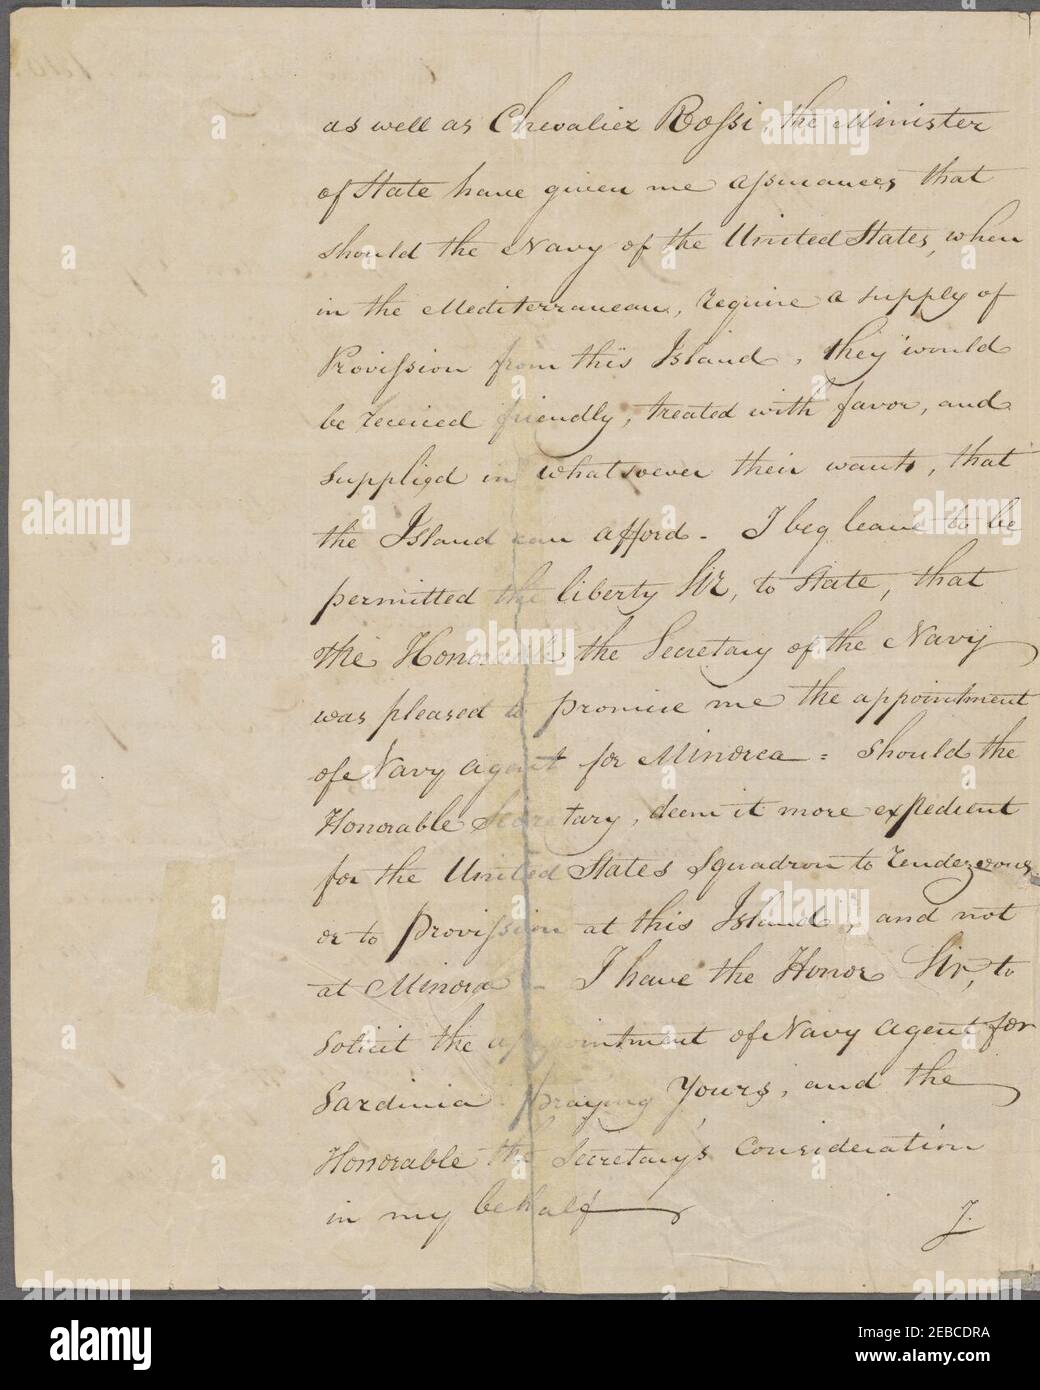 as well as Chevalier Rossi, the Minister
of State have given me assurances that
should the Navy of the United States, when
in the Mediterranean, require a supply of
Provission from this Island, they would
be received friendly, treated with favor, and
supplied in whatsoever their wants, that
the Island can afford - I beg leave to be
permitted the liberty Sir, to state, that
the Honorable the Secretary of the Navy
was pleased to promise me the appointment
of Navy agent for Minorca = should the
Honorable Secretary, deem it more expedient
for the United States Squadron to rendezvous
or to provission at this Island, and not
at Minorca - I have the Honor Sir, to
solicit the appointment of Navy agent for
Sardinia - praying Yours, and the
Honorable the Secretary's consideration
in my behalf
J.
alamy
a
alamy
Image ID: 2EBCDRA
www.alamy.com